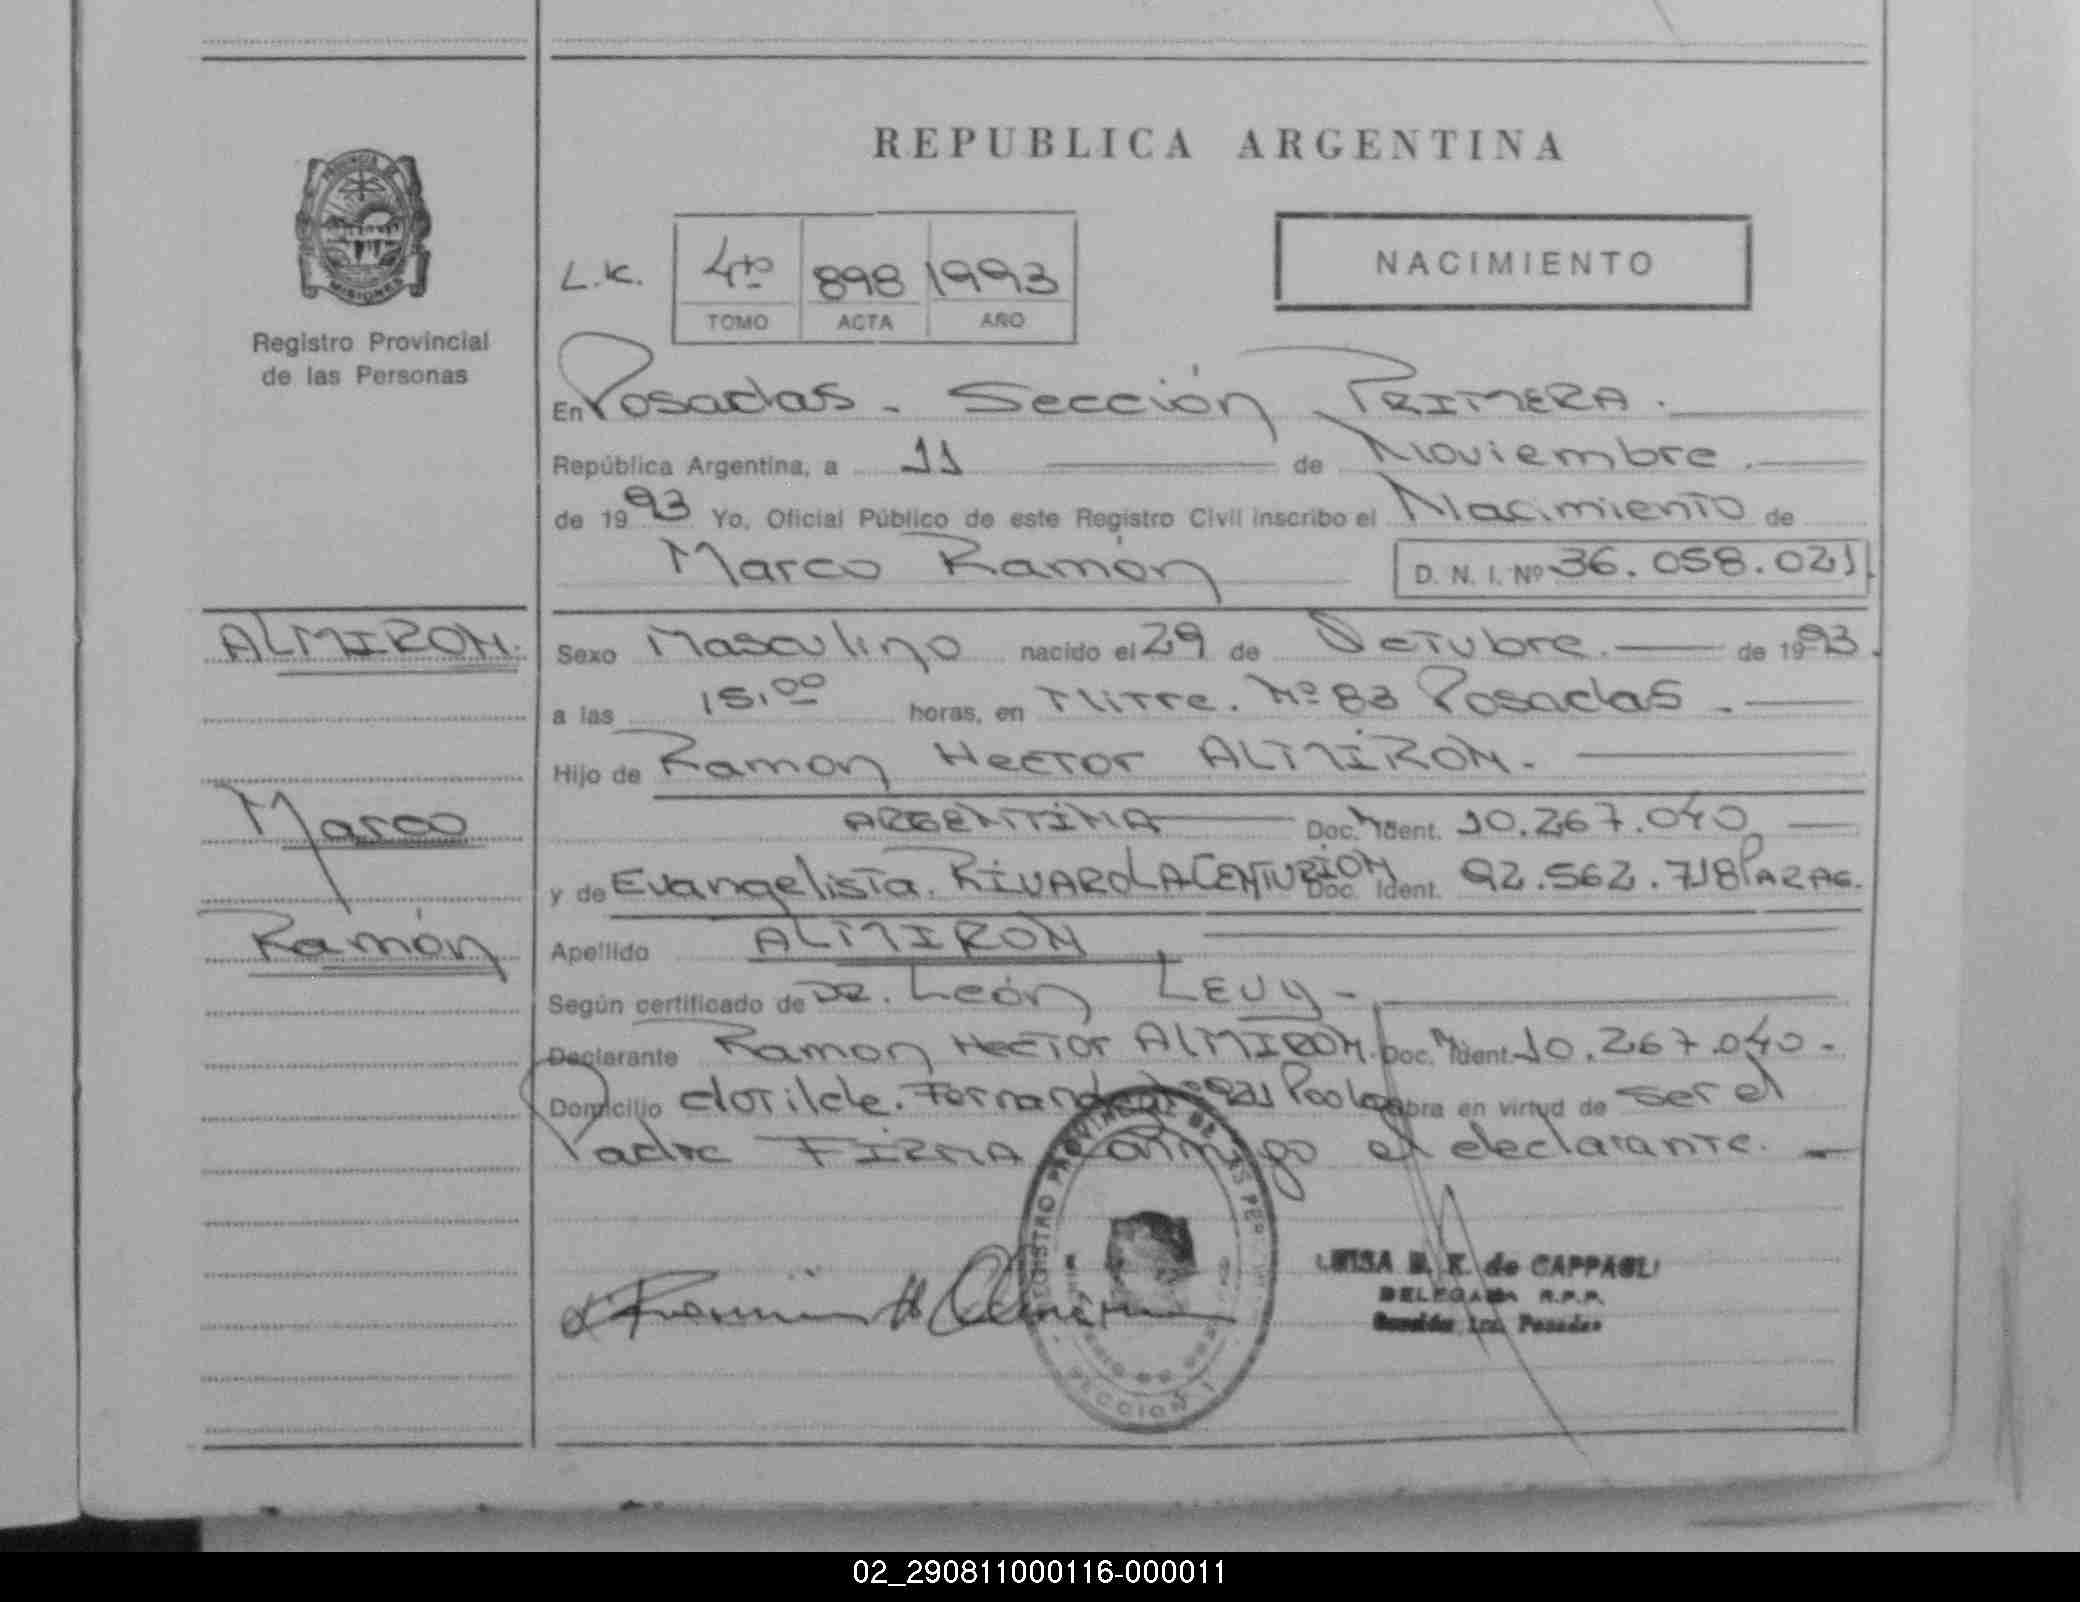 REPUBLICA ARGENTINA
PROVINCIA DE MISIONES
Registro Provincial
de las Personas
NACIMIENTO
L.K. 4to 898 1993
TOMO ACTA AÑO
En Posadas - Sección PRIMERA.
República Argentina, a 11 de Noviembre.
de 1993 Yo, Oficial Público de este Registro Civil inscribo el Nacimiento de
Marco Ramón D. N. I. Nº 36.058.021.
ALMIRON.
Marco
Ramón
Sexo Masculino nacido el 29 de Octubre. de 1993.
a las 15.00 horas, en Mitre. Nº 83 Posadas -
Hijo de Ramon Hector ALMIRON.
ARGENTINA Doc. Ident. 10.267.040
y de Evangelista. RIVAROLA CENTURION Doc. Ident. 92.562.718 PARAG.
Apellido ALMIRON
Según certificado de DR. León LEVY -
Declarante Ramon Hector ALMIRON. Doc. Ident. 10.267.040.
Domicilio clotilde. Fernandez obra en virtud de ser el
Padre FIRMA conmigo el declarante.
REGISTRO PROVINCIAL DE LAS PER
SECCION 1
de CAPPAGLI
DELEGADA R.P.P.
Sección 1ra. Posadas
02_290811000116-000011